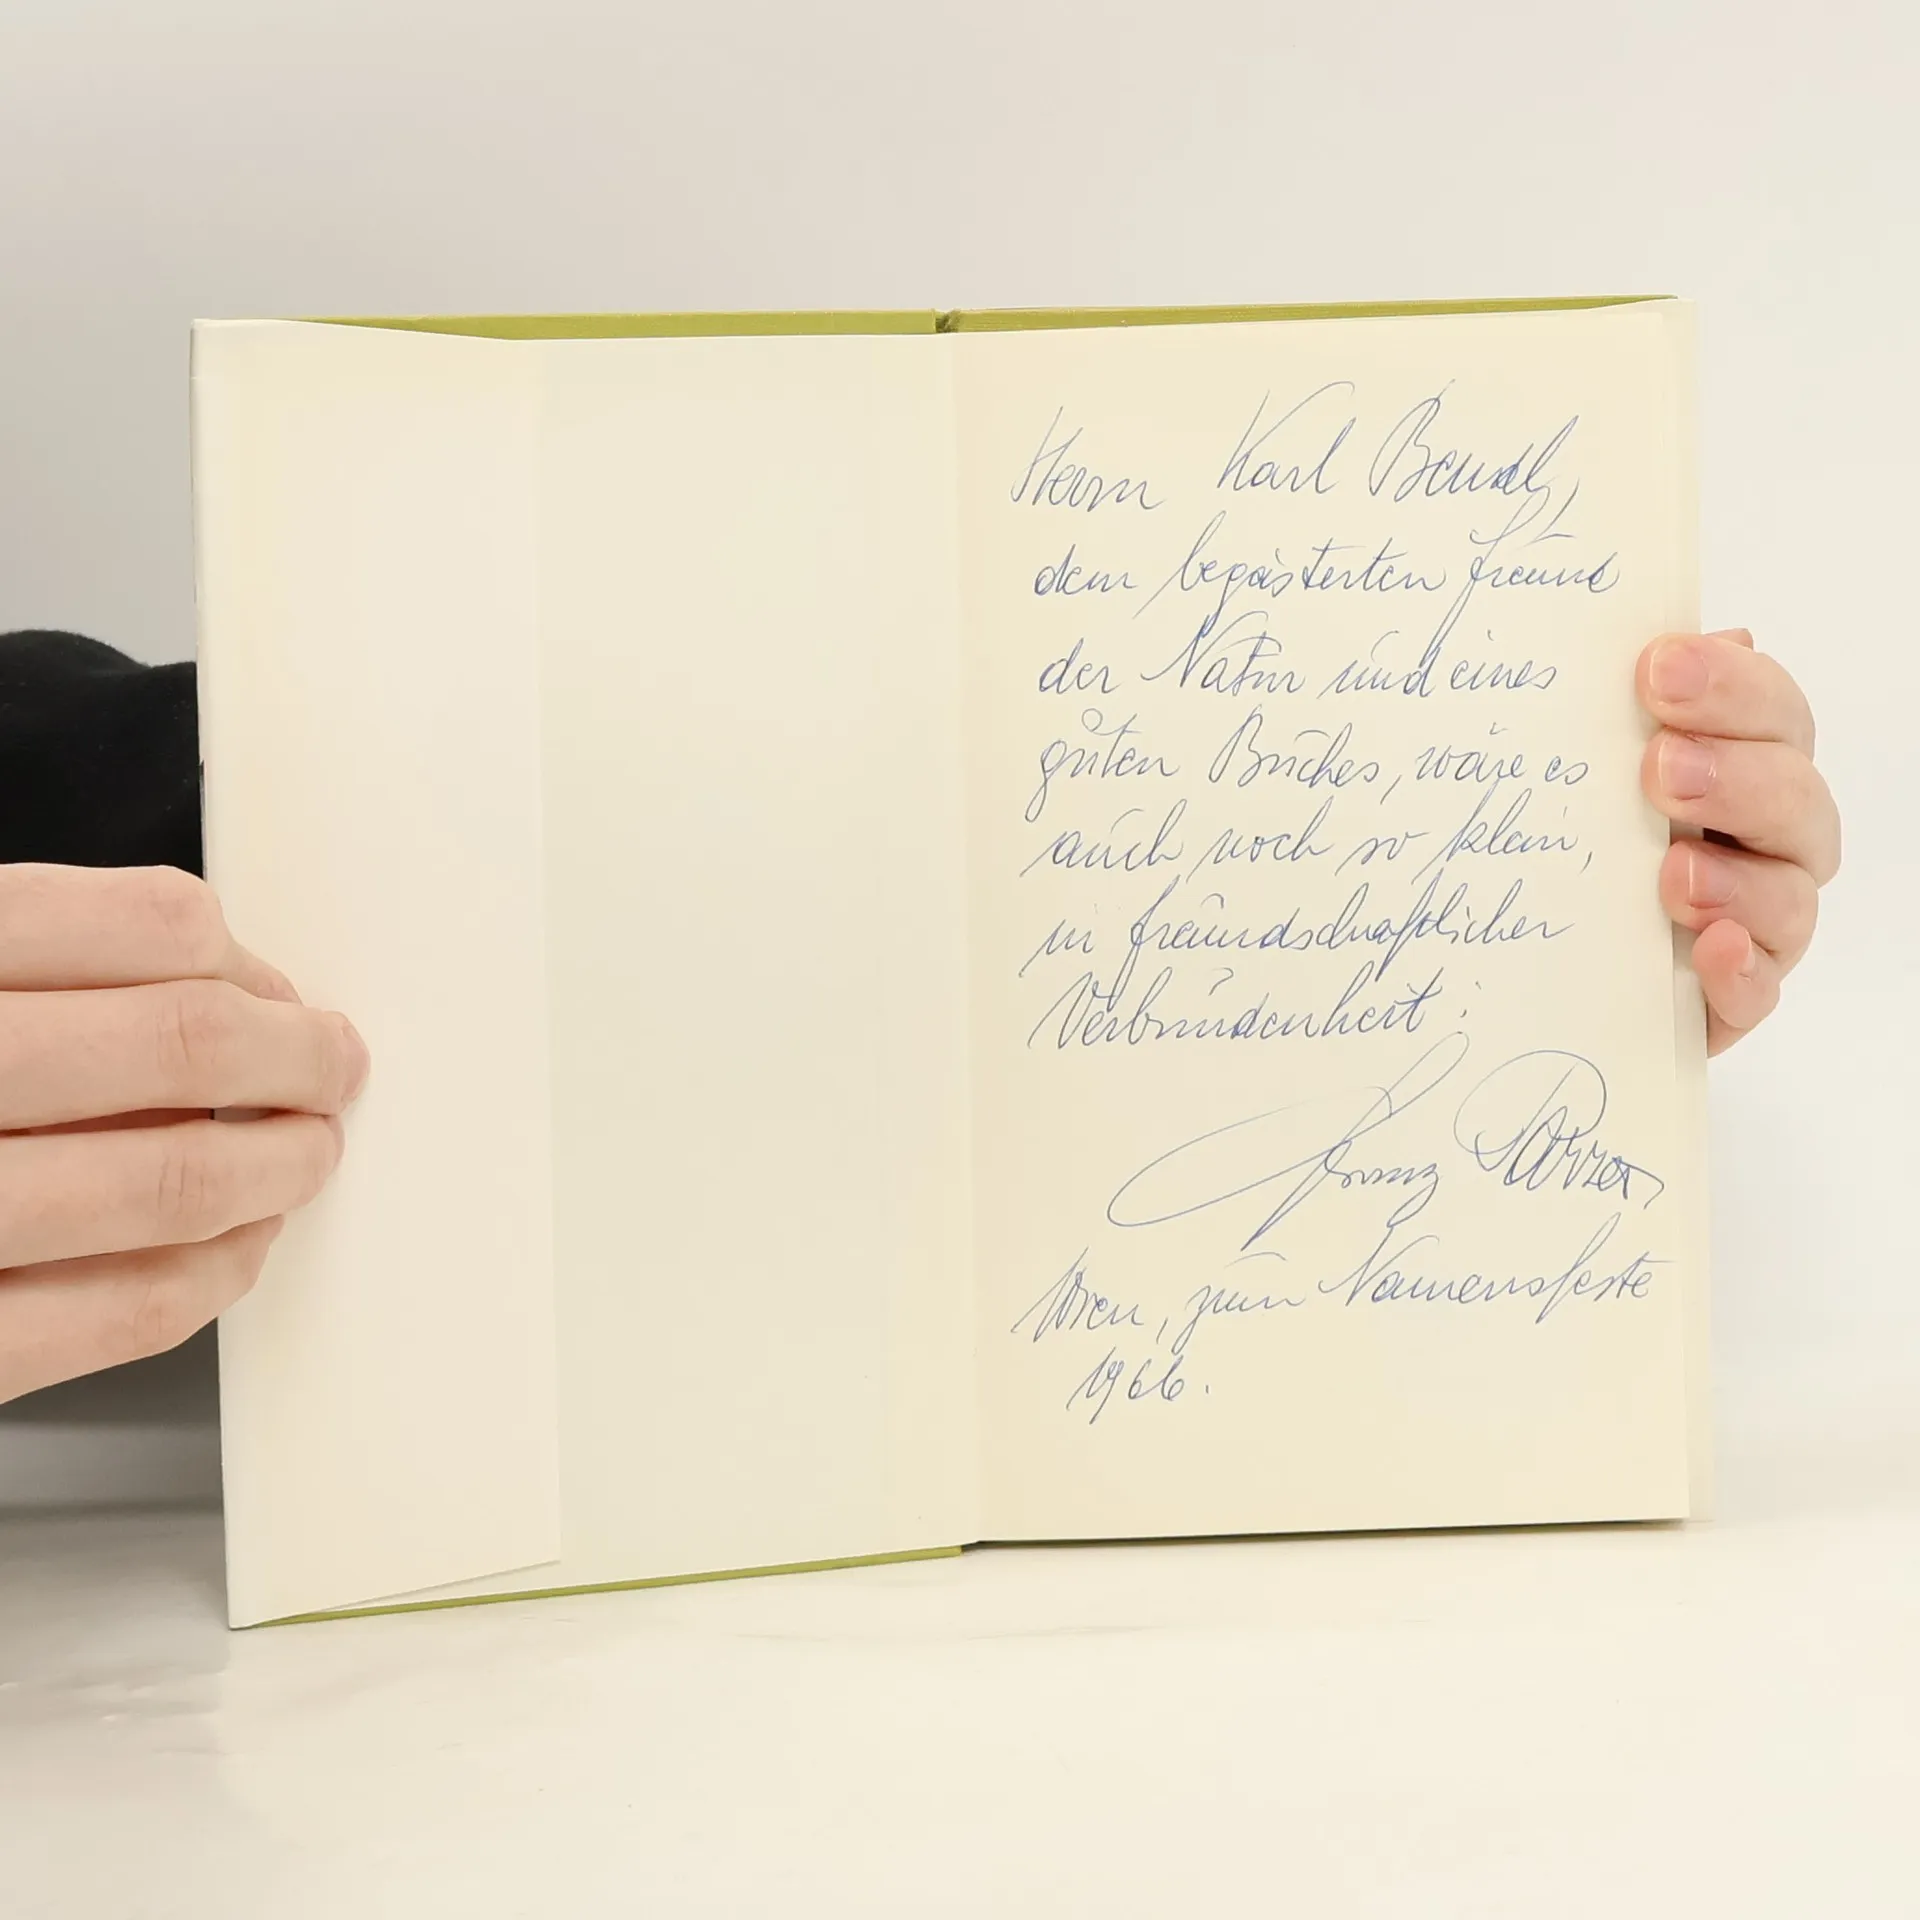 Herrn Karl Bendl,
dem begeisterten Freund
der Natur und eines
guten Buches, wäre es
auch noch so klein,
in freundschaftlicher
Verbundenheit:
Franz
Wien, zum Namensfeste
1966.